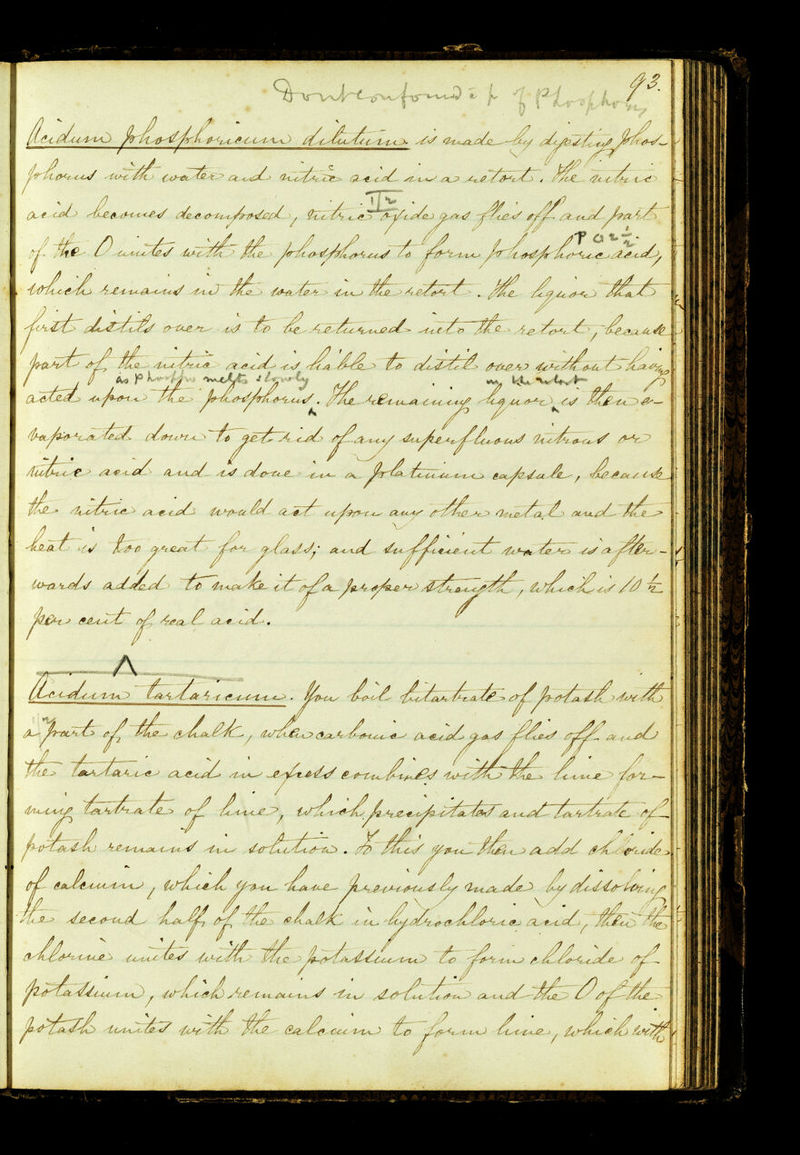 93.
Dont confound c̄ of Phosphorus
Acidum phosphoricum dilutum is made by digesting phos-
phorus with water and nitric acid in a retort. The nitric
acid becomes decomposed, nitric oxide gas flies off and part
of the O unites with the phosphorus to form phosphoric acid,
which remains in the water in the retort. The liquor that
first distils over is to be returned into the retort, because
part of the nitric acid is liable to distil over without having
as Phosphs melts slowly in the retort
acted upon the phosphorus. The remaining liquor is then e-
vaporated down to get rid of any superfluous nitrous or
nitric acid and is done in a platinum capsule, because
the nitric acid would act upon any other metal and the
heat is too great for glass; and sufficient water is after-
wards added to make it of a proper strength, which is 10 ½
per cent of real acid.
Acidum tartaricum. You boil bitartrate of potash with
a part of the chalk, when carbonic acid gas flies off and
the tartaric acid in excess combines with the lime for-
ming tartrate of lime, which precipitates and tartrate of
potash remains in solution. To this you then add chloride
of calcium, which you have previously made by dissolving
the second half of the chalk in hydrochloric acid, then the
chlorine unites with the potassium to form chloride of
potassium, which remains in solution and the O of the
potash unites with the calcium to form lime, which with